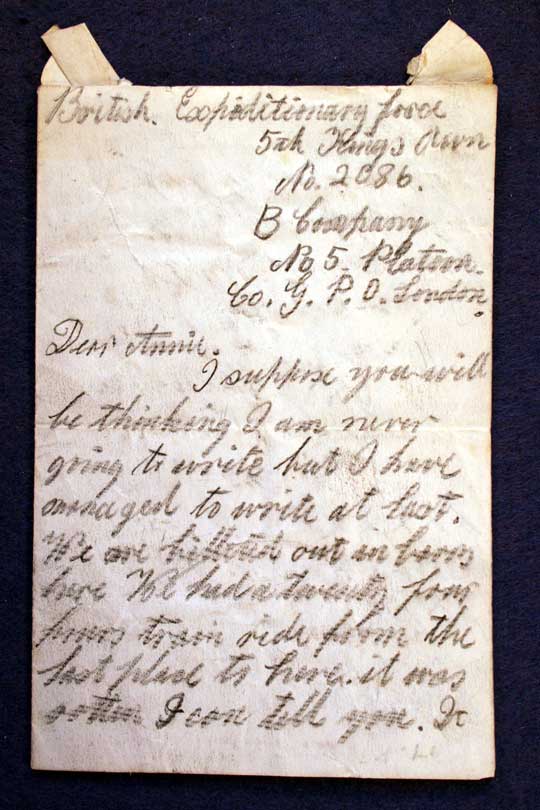 British. Expeditionary force
5th Kings Own
No. 2086.
B Company
No 5. Platoon.
Co. G. P. O. London.
Dear Annie.
I suppose you will
be thinking I am never
going to write but I have
managed to write at last.
We are billeted out in barns
here We had a twenty four
hours train ride from the
last place to here. it was
rotten I can tell you. It